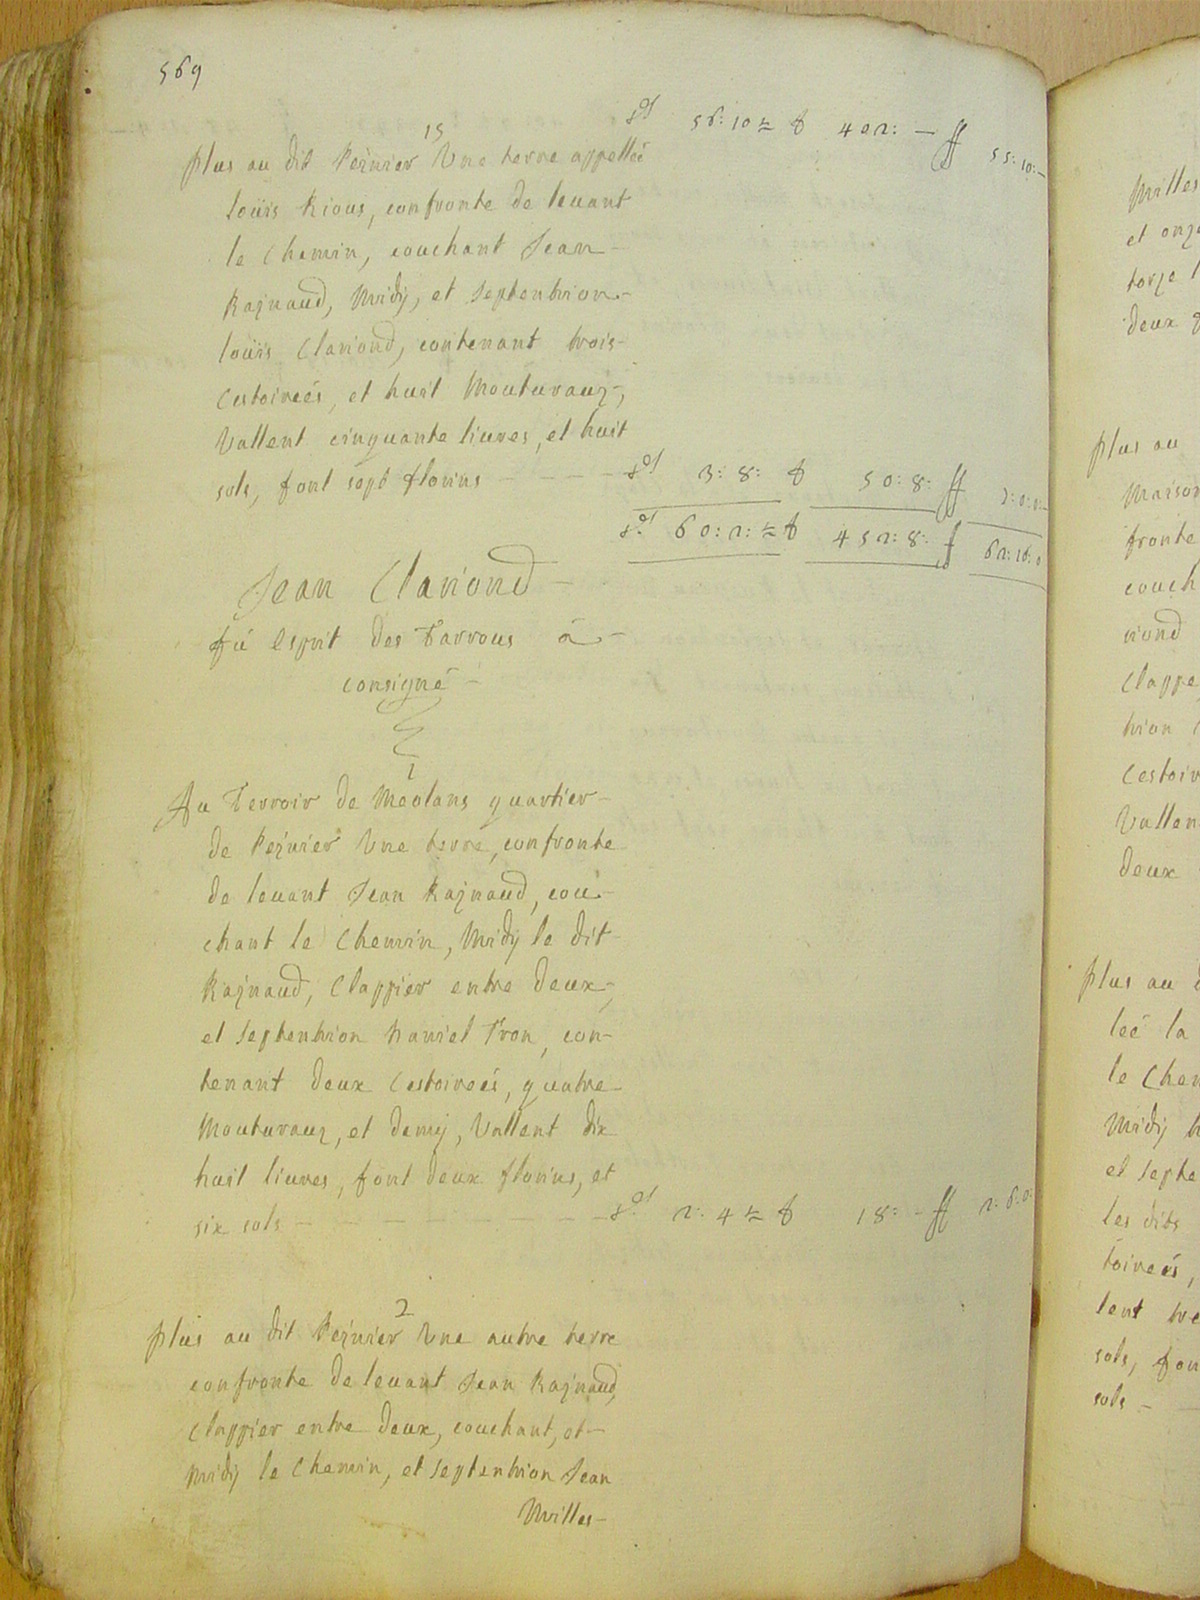 569
56: 10 ½ 402: — 55: 10: —
15
plus au dit Pejnier Une terre appelleé
loüis Rious, confronte de leuant
le Chemin, couchant Jean —
Rajnaud, Midÿ, et Septentrion —
loüis Clariond, contenant trois —
Cestoireés, et huit Mouturaux,
Vallent cinquante liures, et huit
sols, font sept florins — — — 3: 8: 50: 8:
60: 2: ½ 452: 8: 62: 10: 0
Jean Clariond —
fu esprit des Tarrous á —
consigné —
1
Au Terroir de Méolans quartier —
de Pejnier Une terre, confronte
de leuant Jean Rajnaud, cou-
chant le Chemin, Midÿ le dit
Rajnaud, Clappier entre deux,
et Septentrion Tron, con-
tenant deux Cestoireés, quatre
Mouturaux, et demÿ, Vallent dix
huit liures, font deux florins, et
six sols — — — — — — — 2: 4 ½ 18: — 2: 6: 0:
2
plus au dit Pejnier Une autre terre
confronte de leuant Jean Rajnaud,
Clappier entre deux, couchant, et —
Midÿ le Chemin, et Septentrion Jean
Milles —
Milles
et onze
torze l
deux
plus au
Maison
fronte
couch
riond
Clappe
trion
Cestoir
Vallen
deux
plus au
leé la
le Chem
Midÿ
et septe
les dits
toireés,
lent tre
sols, fon
sols —